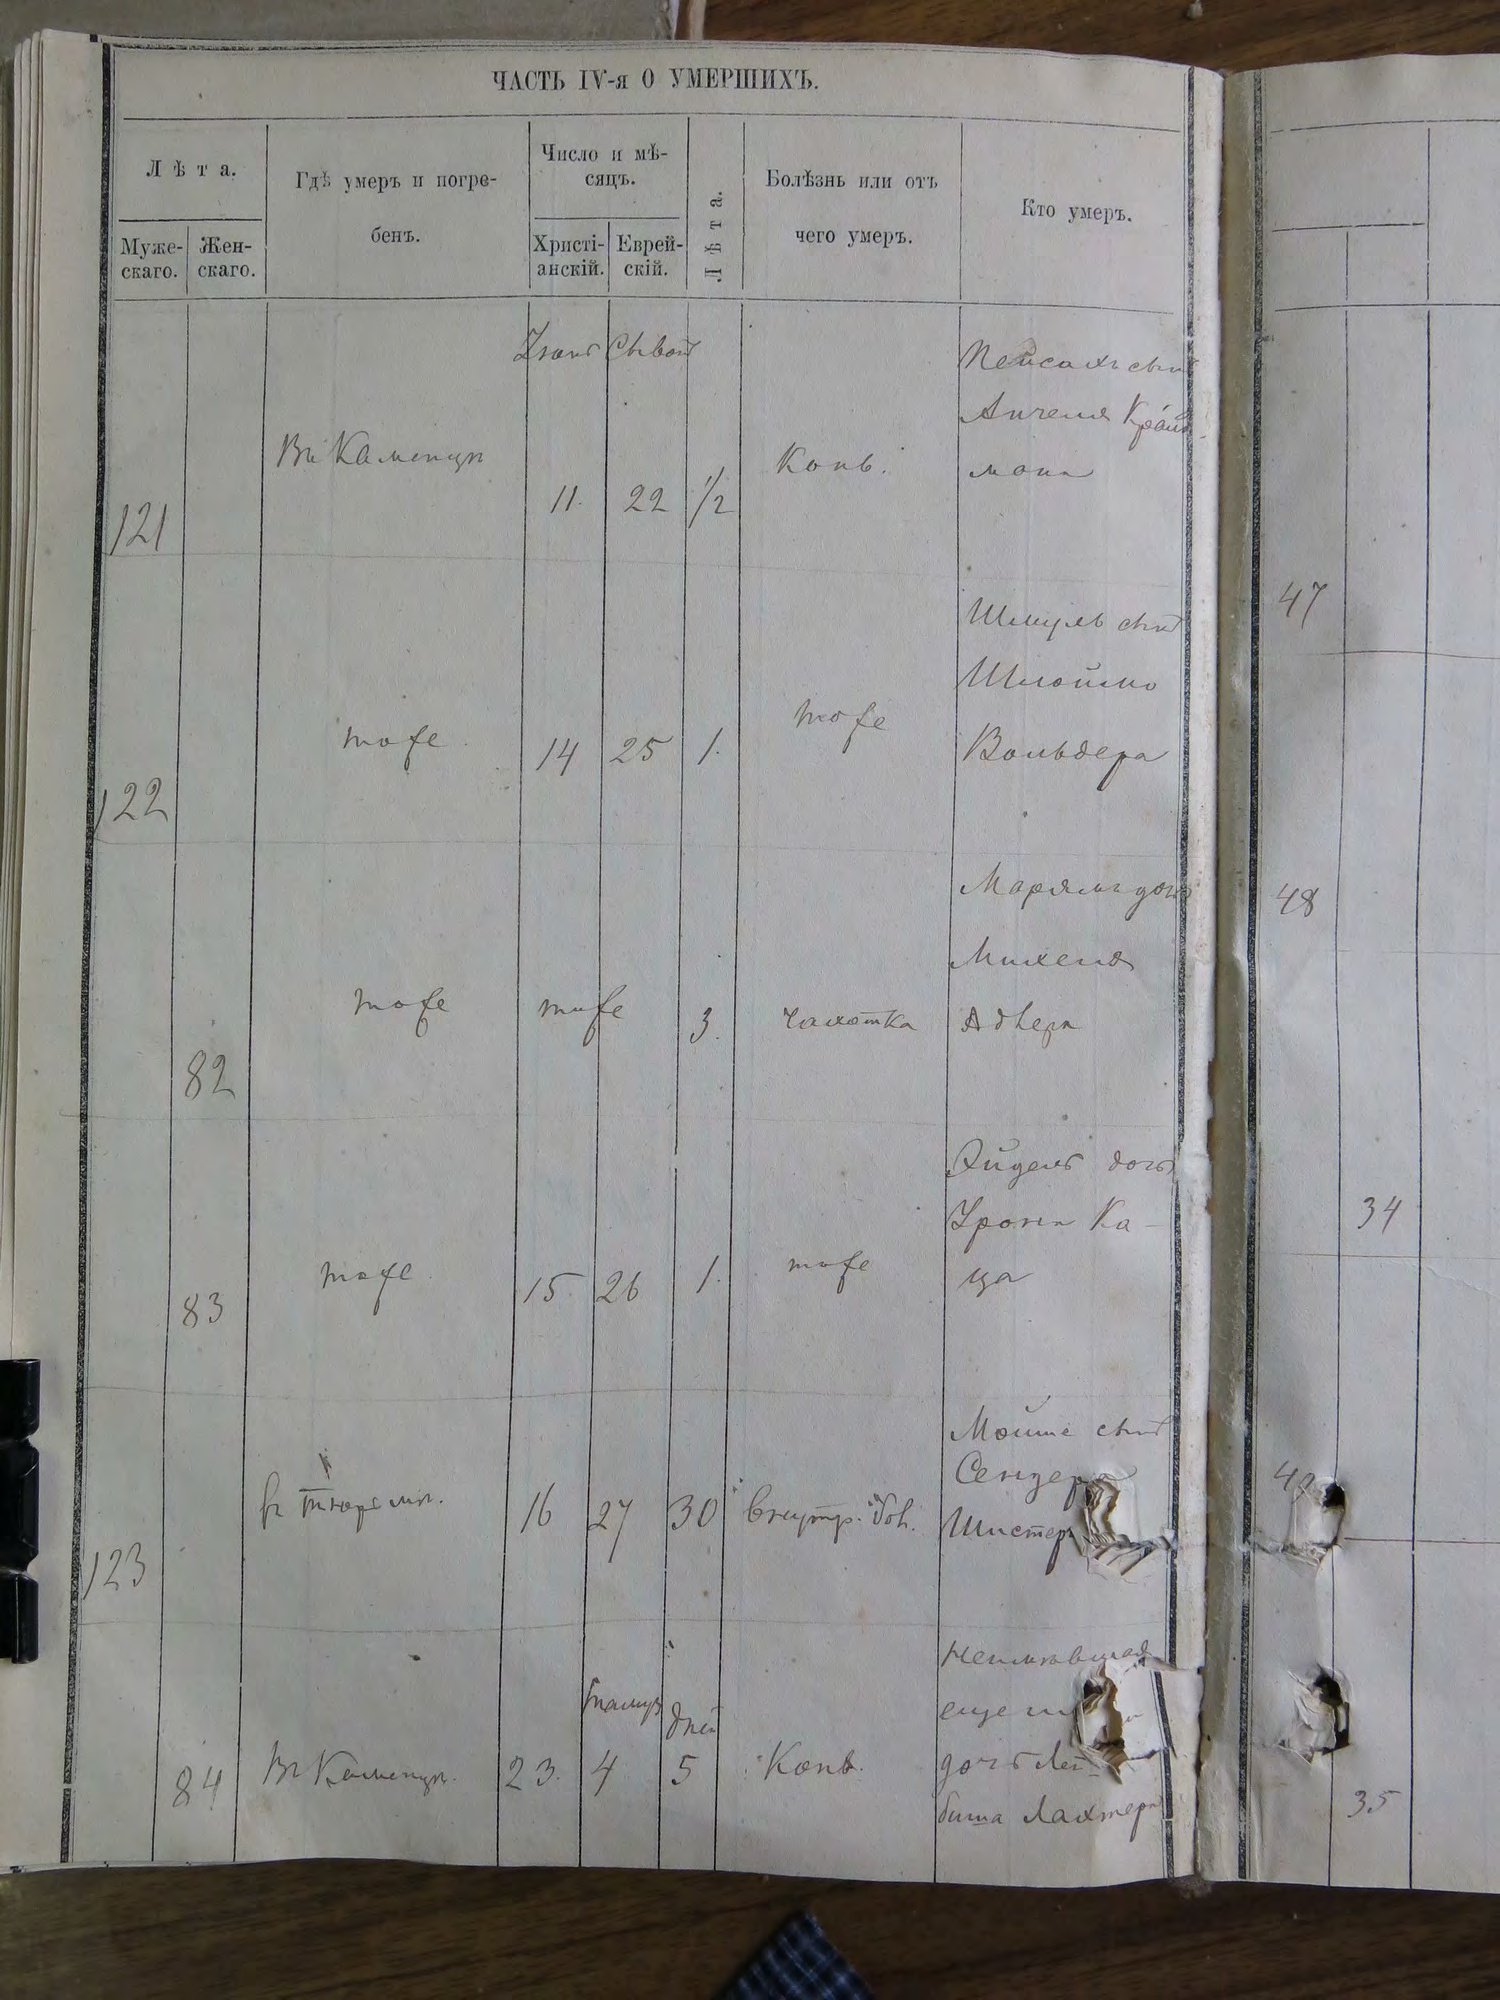 ЧАСТЬ IV-я О УМЕРШИХЪ.
Лѣта.
Муже-
скаго.
Жен-
скаго.
Гдѣ умеръ и погре-
бенъ.
Число и мѣ-
сяцъ.
Христі-
анскій.
Еврей-
скій.
Лѣта.
Болѣзнь или отъ
чего умеръ.
Кто умеръ.
121
Въ Каменцѣ
11.
Сывонъ
22
1/2
Конв.
Пейсахъ сынъ
Анчеля Край-
мана
122
тоже
14
25
1.
тоже
Шмуль сынъ
Шлоймо
Вольдера
82
тоже
тоже
3.
чахотка
Марямъ дочь
Михеля
83
тоже
15
26
1.
тоже
Эйдель дочь
Ка-
ца
123
въ тюремн.
16
27
30
внутр. бол.
Мойше сынъ
Сендера
Шистер
84
Въ Каменцѣ.
23.
тамузъ
4
дней
5
Конв.
Неимѣвшая
еще
дочь Лей-
биша Лахтера
47
48
34
49
35